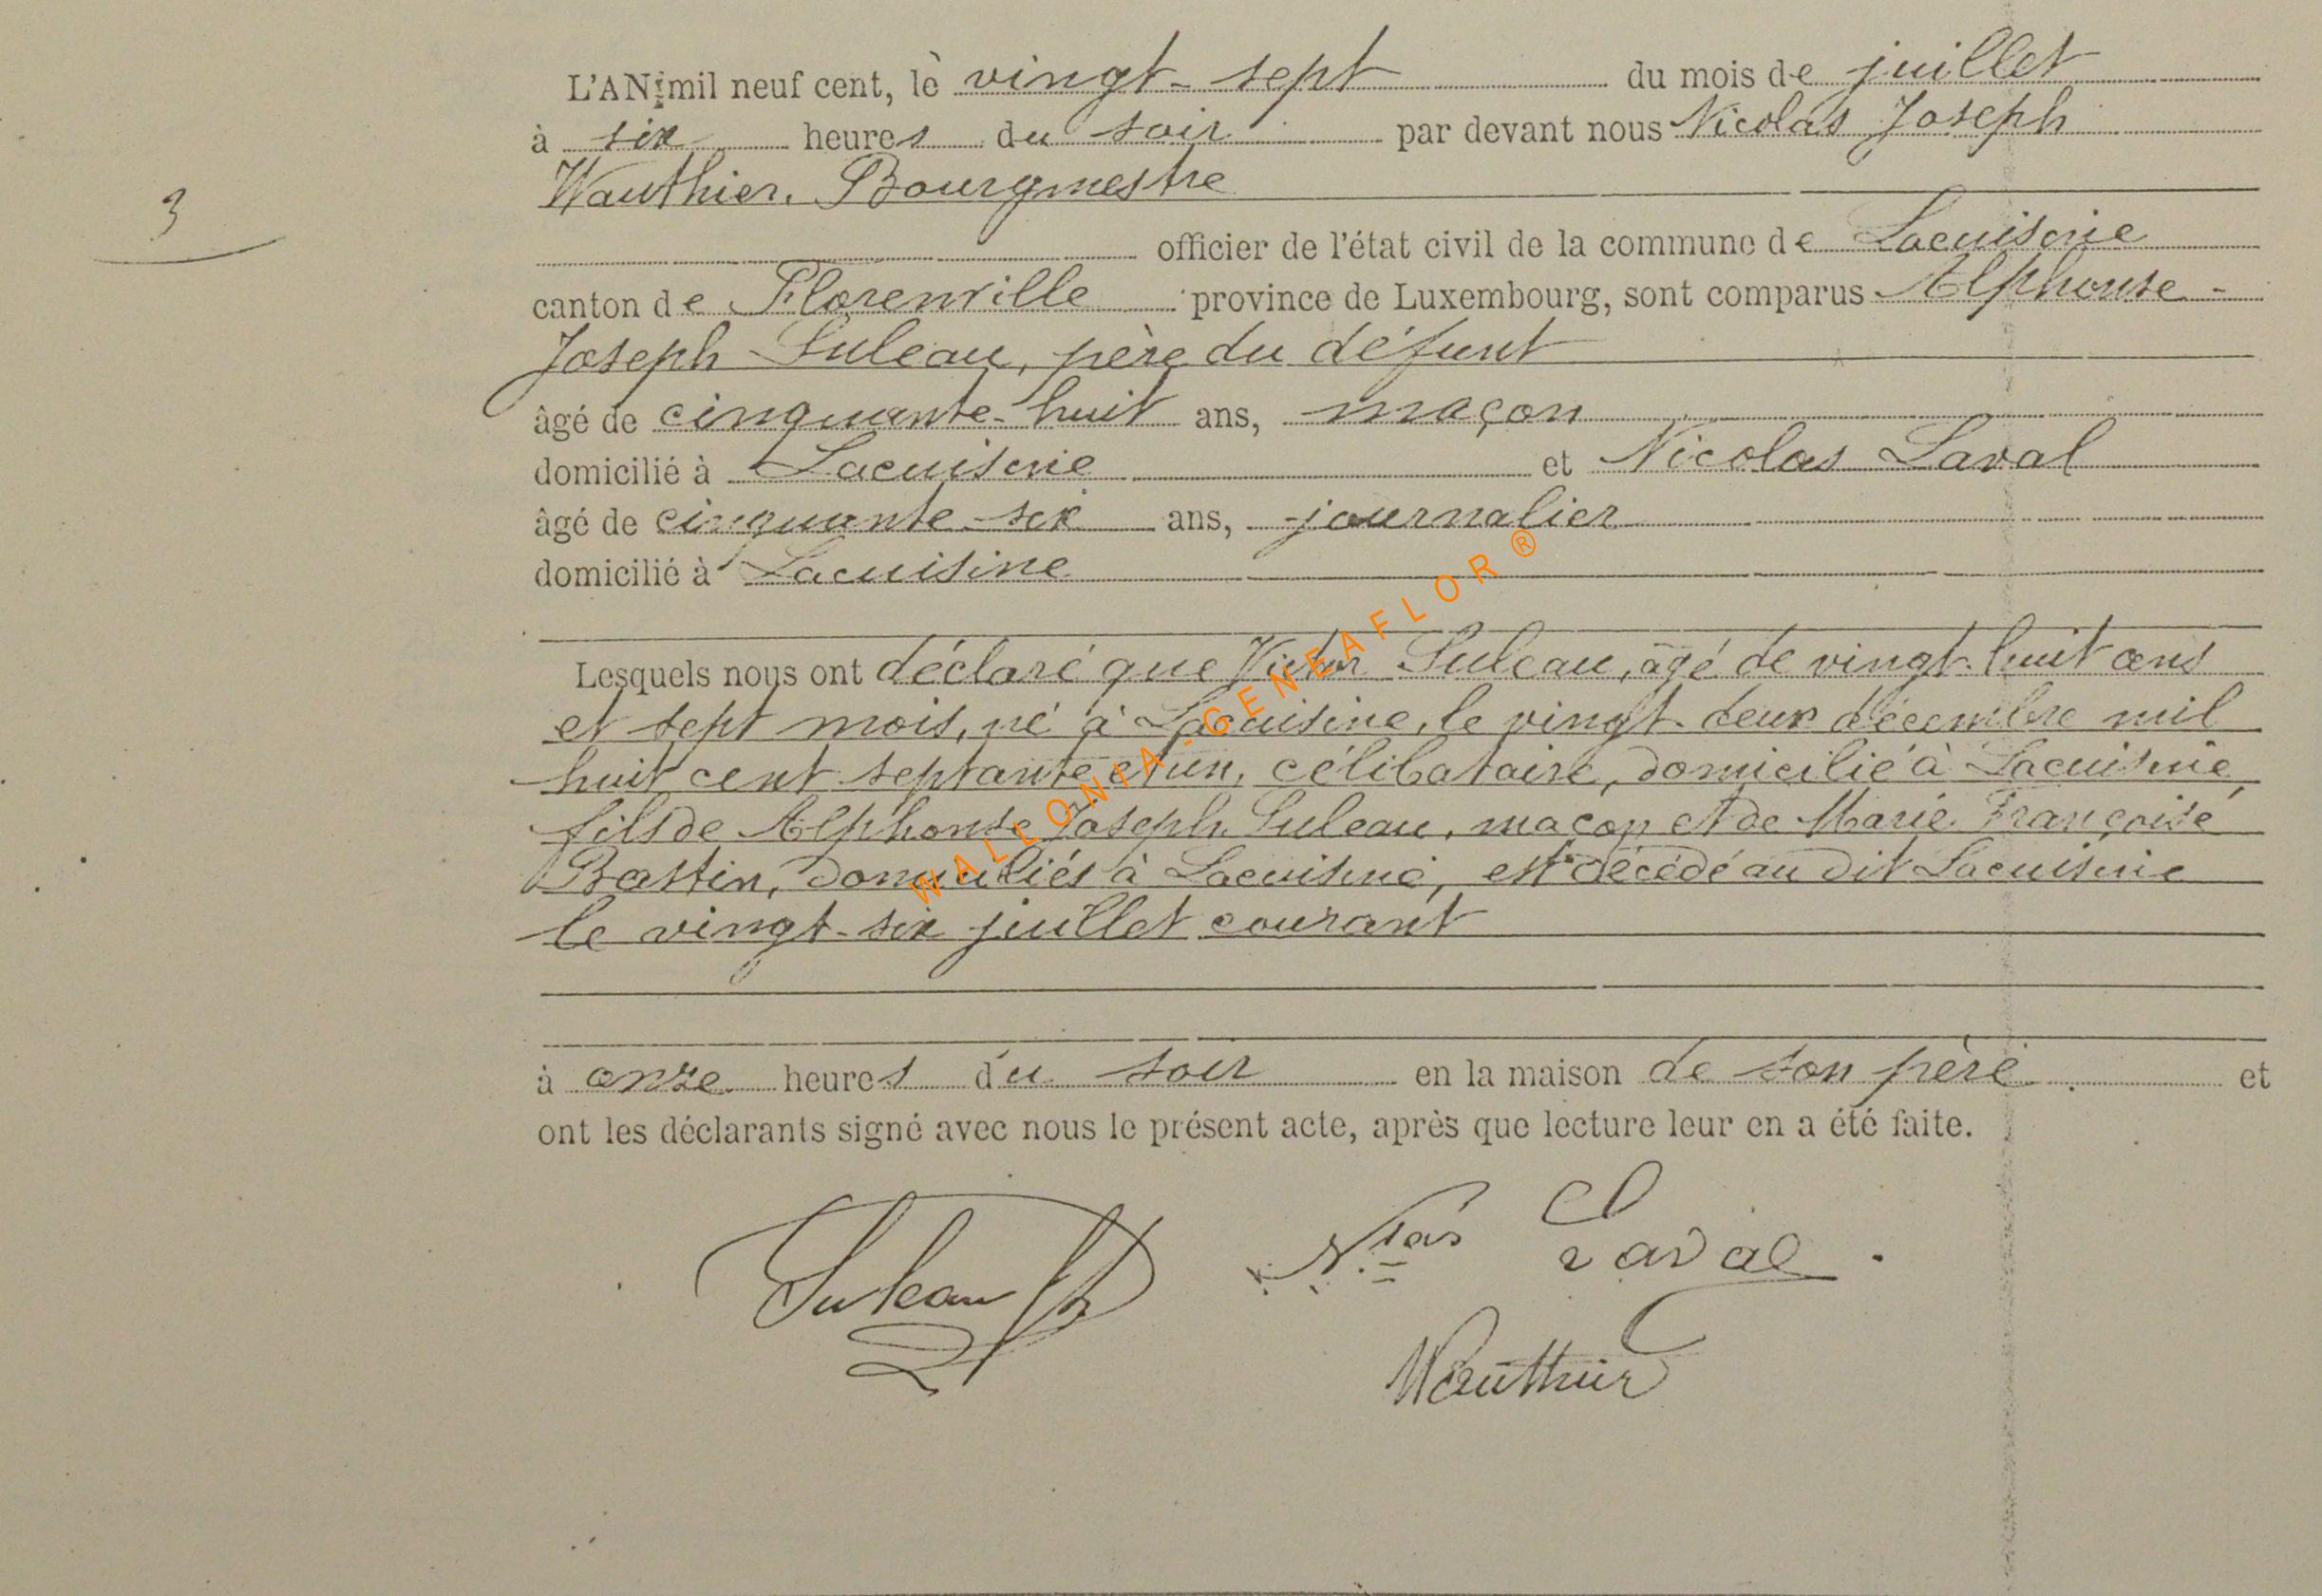 L'AN mil neuf cent, le vingt-sept du mois de juillet
à six heures du soir par devant nous Nicolas Joseph
Wauthier, Bourgmestre
3
officier de l'état civil de la commune de Lacuisine
canton de Florenville province de Luxembourg, sont comparus Alphonse-
Joseph Suleau, père du défunt
âgé de cinquante-huit ans, maçon
domicilié à Lacuisine et Nicolas Laval
âgé de cinquante-six ans, journalier
domicilié à Lacuisine
Lesquels nous ont déclaré que Victor Suleau, âgé de vingt-huit ans
et sept mois, né à Lacuisine, le vingt-deux décembre mil
huit cent septante et un, célibataire, domicilié à Lacuisine,
fils de Alphonse Joseph Suleau, maçon et de Marie Françoise
Bastin, domiciliés à Lacuisine, est décédé au dit Lacuisine
le vingt-six juillet courant
à onze heures du soir en la maison de son père et
ont les déclarants signé avec nous le présent acte, après que lecture leur en a été faite.
Suleau
Nlas Laval
Wauthier
WALLONIA-GENEAFLOR®